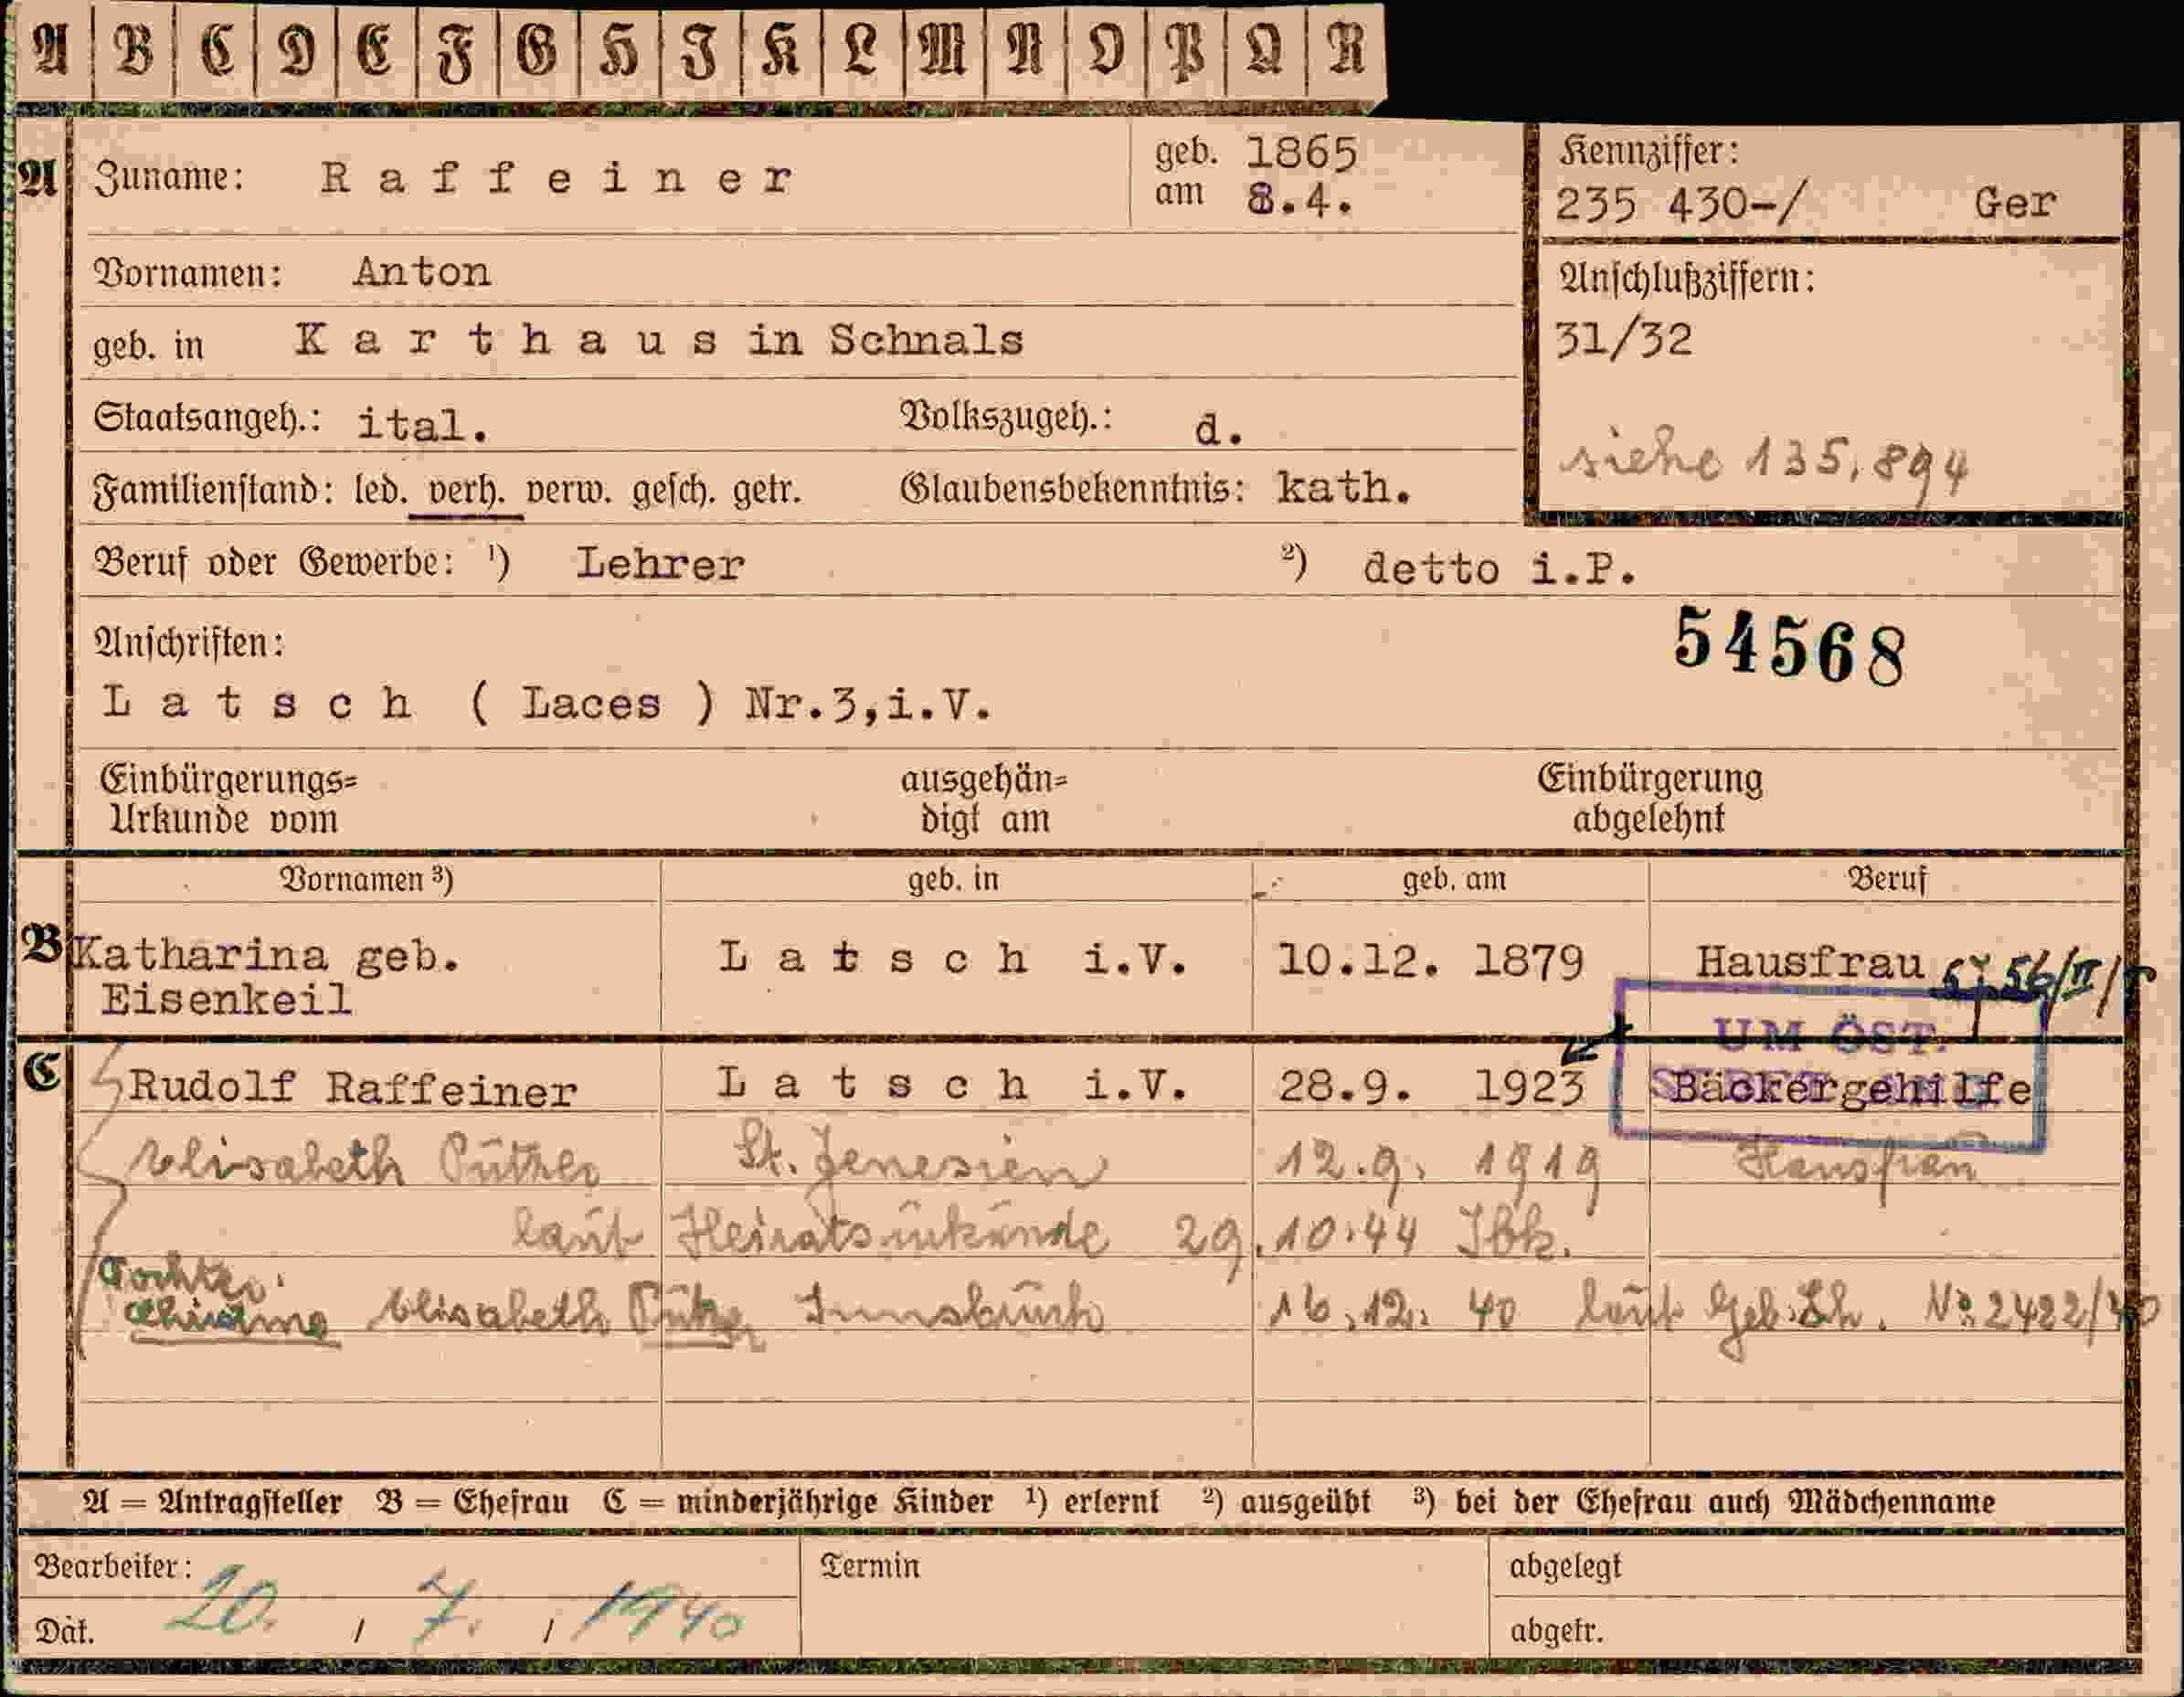 A B C D E F G H I K L M N O P Q R
A Zuname: Raffeiner geb. 1865 am 8.4.
Kennziffer:
235 430-/ Ger
Vornamen: Anton
Anschlußziffern:
31/32
geb. in Karthaus in Schnals
Staatsangeh.: ital. Volkszugeh.: d.
siehe 135,894
Familienstand: led. verh. verw. gesch. getr. Glaubensbekenntnis: kath.
Beruf oder Gewerbe: ¹) Lehrer ²) detto i.P.
54568
Anschriften:
Latsch ( Laces ) Nr.3,i.V.
Einbürgerungs= ausgehän= Einbürgerung
Urkunde vom digt am abgelehnt
Vornamen ³) geb. in geb. am Beruf
B Katharina geb. Latsch i.V. 10.12. 1879 Hausfrau 56/II/
Eisenkeil
UM ÖST.
C Rudolf Raffeiner Latsch i.V. 28.9. 1923 Bäckergehilfe
Elisabeth St. Jenesien 12.9. 1919 Hausfrau
laut Heiratsurkunde 29.10.44 Ibk.
Tochter:
Elisabeth Innsbruck 16.12. 40 laut Geb. No. 2422/40
A = Antragsteller B = Ehefrau C = minderjährige Kinder ¹) erlernt ²) ausgeübt ³) bei der Ehefrau auch Mädchenname
Bearbeiter: Termin abgelegt
Dat. 20. / 7. / 1940 abgetr.